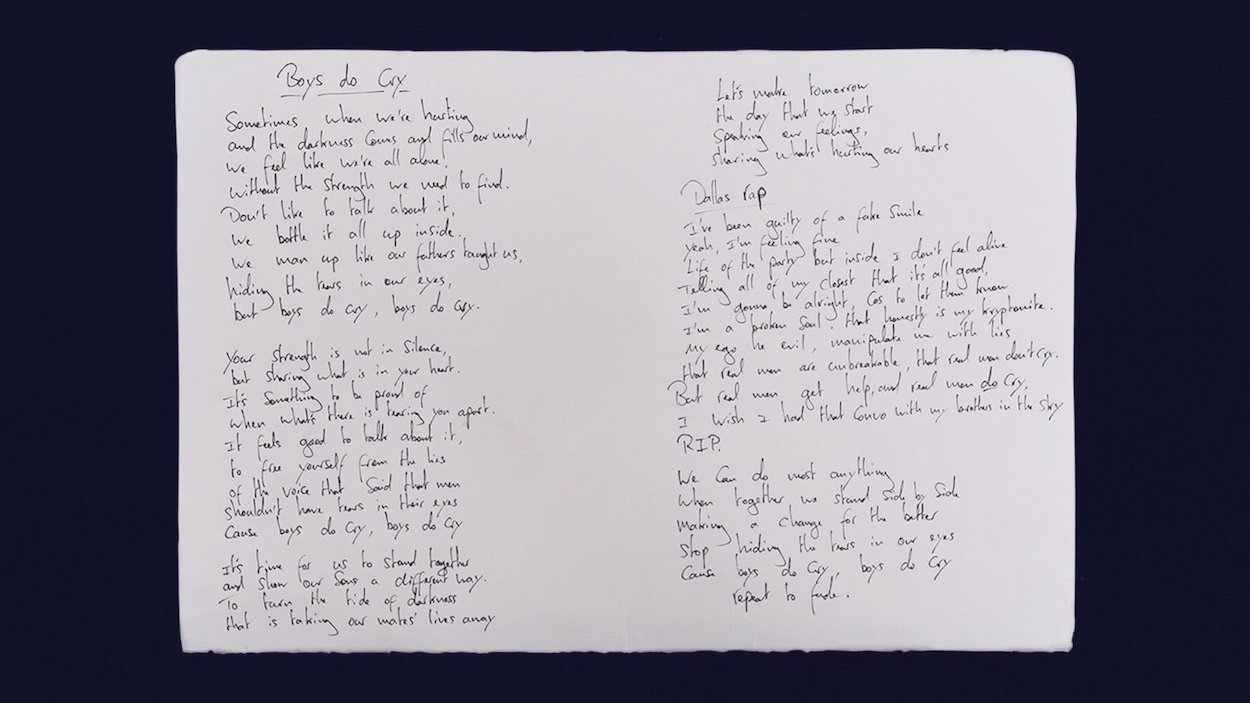 Boys do Cry
Sometimes when we're hurting
and the darkness comes and fills our mind,
We feel like we're all alone,
Without the strength we need to find.
Don't like to talk about it,
We bottle it all up inside.
We man up like our fathers taught us,
hiding the tears in our eyes,
but boys do cry, boys do cry.
Your strength is not in silence,
but sharing what is in your heart.
It's something to be proud of
When what's there is tearing you apart.
It feels good to talk about it,
to free yourself from the lies
of the voice that said that men
shouldn't have tears in their eyes
Cause boys do cry, boys do cry
It's time for us to stand together
and show our sons a different way.
To turn the tide of darkness
that is taking our mates' lives away
Let's make tomorrow
the day that we start
Speaking our feelings,
sharing what's hurting our hearts
Dallas rap
I've been guilty of a fake smile
yeah, I'm feeling fine
Life of the party but inside I don't feel alive
Telling all of my closest that it's all good,
I'm gonna be alright, Cos to let them know
I'm a broken soul. that honestly is my kryptonite.
My ego he evil, manipulate me with lies
that real men are unbreakable, that real men don't cry.
But real men get help, and real men do cry,
I wish I had that convo with my brothers in the sky
R.I.P.
We can do most anything
When together we stand side by side
Making a change for the better
Stop hiding the tears in our eyes
Cause boys do cry, boys do cry
repeat to fade.